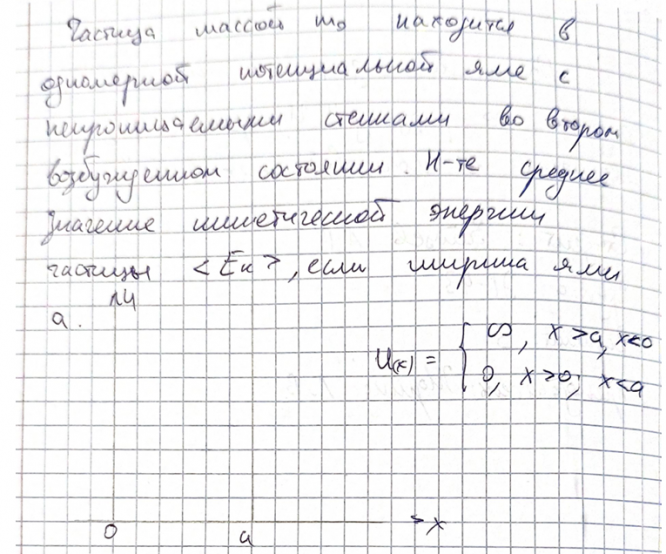 Частица массой m₀ находится в
одномерной потенциальной яме с
непроницаемыми стенками во втором
возбужденном состоянии. Н-те среднее
значение кинетической энергии
частицы <Eк>, если ширина ямы
a.
U
U(x) = { ∞, x>a, x<0
0, x>0; x<a
0 a x